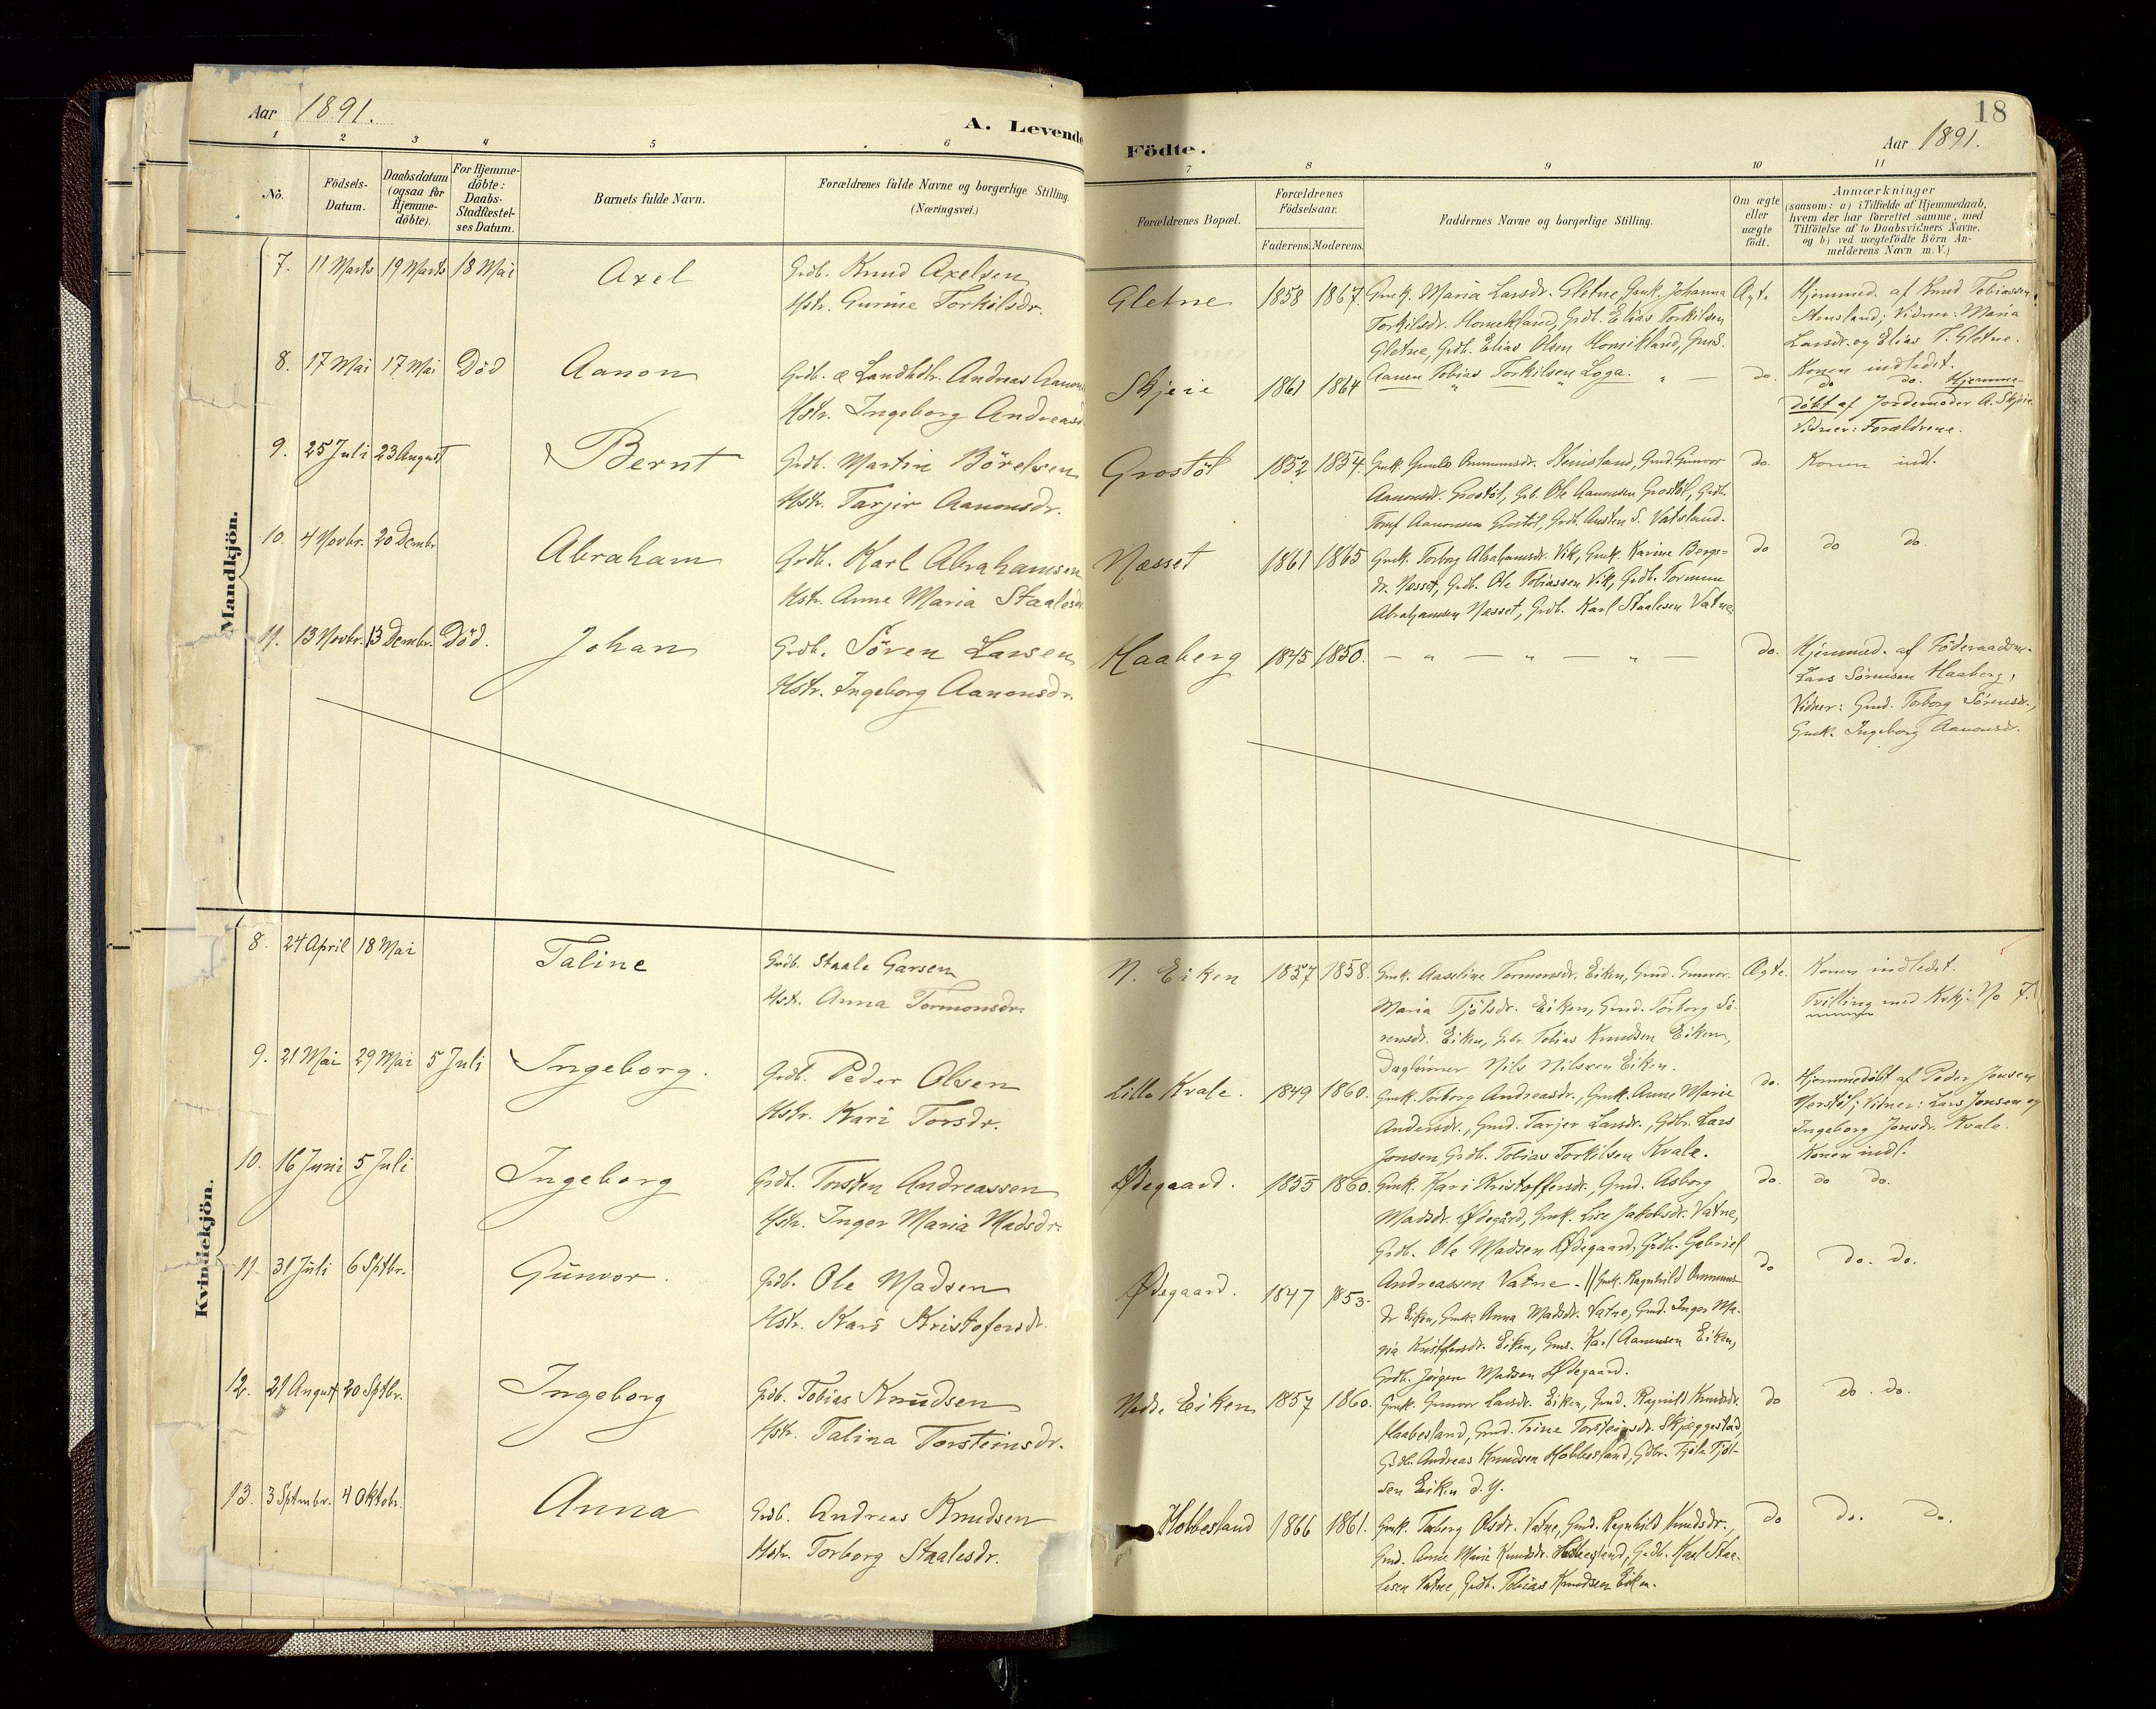 Aar 1891.
A. Levende
Födte.
18
Aar 1891.
1 2 3 4 5 6 7 8 9 10 11
No.
Födsels-
Datum.
Daabsdatum
(ogsaa for
Hjemme-
döbte).
For Hjemme-
döbte:
Daabs-
Stadfæstel-
ses Datum.
Barnets fulde Navn.
Forældrenes fulde Navne og borgerlige Stilling.
(Næringsvei.)
Forældrenes Bopæl.
Forældrenes
Födselsaar.
Faderens. Moderens.
Faddernes Navne og borgerlige Stilling.
Om ægte
eller
uægte
födt.
Anmærkninger
(saasom: a) i Tilfælde af Hjemmedaab,
hvem der har forrettet samme, med
Tilföielse af to Daabsvidners Navne.
og b) ved uægtefödte Börn An-
melderens Navn m. V.)
Mandkjön.
7. 11 Marts 19 Marts 18 Mai Axel
Grdb. Knud Axelsen
Hstr. Gurine Torkilsdr.
Gletne 1858 1867.
Gmk. Maria Larsdr. Gletne, Gmk. Johanna
Torkilsdr. Homekland, Grdb. Elias Torkilsen
Gletne, Grdb. Elias Olsen Homikland, Gms.
Tobias Torkilsen Loga.
Ægte
Hjemmed. af Knud Tobiassen
Stensland; Vidner: Maria
Larsdr. og Elias T. Gletne.
Konen indledet.
8. 17 Mai 17 Mai Död Aanon
Grdb. & Landhdlr. Andreas Aanon
Hstr. Ingeborg Andreasd
Skjeie 1861 1864 do.
do do. Hjemme-
döbt af Jordemoder A. Skjeie
Vidner: Forældrene.
9. 25 Juli 23 August Bernt
Grdb. Martin Börelsen
Hstr. Tarjer Aanonsdr.
Grostöl 1852 1854.
Aanonsdr. Grostöl, Grb. Ole Aanonsen Grostöl, Grdb.
Aanonsen Grostöl, Grdb. Austen S. Vatsland.
do. Konen indl.
10. 4 Novbr. 20 Decmbr Abraham
Grdb. Karl Abrahamsen
Hstr. Anne Maria Staalesdr
Næsset 1861 1865
Gmk. Torborg Abrahamsdr. Vik, Gmk. Karine Bergs-
dr. Næsset, Grdb. Ole Tobiassen Vik, Grdb. Tormun
Abrahamsen Næsset, Grdb. Karl Staalesen Vatne
do do do.
11. 13 Novbr. 13 Decmbr. Död. Johan
Grdb. Sören Larsen
Hstr. Ingeborg Aanonsdr.
Haaberg 1845 1850.
— „ — „ — „
do.
Hjemmed. af Föderaadsm.
Lars Sörensen Haaberg,
Vidner: Gmd. Torborg Sörensdr.,
Gmk. Ingeborg Aanonsdr.
Kvindekjön.
8. 24 April 18 Mai Taline
Grdb. Staale Garsen
Hstr. Anna Tormonsdr.
N. Eiken 1857 1858.
Gmk. Aaseline Tormonsdr. Eiken, Gmd. Gunvor
Maria Tjölsdr. Eiken, Gmd. Torborg Sö-
rensdr. Eiken, Gdr. Tobias Knudsen Eiken,
Daglönner Nils Nilssen Eiken.
Ægte. Konen indledet.
Tvilling med Kvkj. No 7.
9. 21 Mai 29 Mai 5 Juli Ingeborg.
Grdb. Peder Olsen
Hstr. Kari Torsdr.
Lille Kvale. 1849 1860.
Gmk. Torborg Andreasdr., Gmk. Anne Marie
Andersdr., Gmd. Tarjer Larsdr., Gdbr. Lars
Jonsen, Grdb. Tobias Torkilsen Kvale.
do.
Hjemmedöbt af Peder Jensen
Nerstöl; Vidner: Lars Jonsen og
Ingeborg Jonsdr. Kvale.
Konen indl.
10. 16 Juni 5 Juli Ingeborg
Grdb. Torsten Andreassen
Hstr. Inger Maria Madsdr.
Ødegaard. 1855 1860.
Gmk. Kari Kristoffersdr., Gmd. Asborg
Madsdr. Ødegård, Gmk. Lise Jakobsdr. Vatne,
Grdb. Ole Madsen Ødegaard, Grdb. Gabriel
Andreassen Vatne.
do. do do.
11. 31 Juli 6 Sptbr. Gunvor.
Grdb. Ole Madsen
Hstr. Kari Kristofersdr.
Ødegaard. 1847 1853.
// Gmk. Ragnhild Ommuns-
dr Eiken, Gmk. Anna Madsdr. Vatne, Gmd. Inger Ma-
ria Kristfersdr. Eiken, Gms. Karl Aanensen Eiken,
Grdb. Jörgen Madsen Ødegaard.
do do. do.
12. 21 August 20 Sptbr. Ingeborg
Grdb. Tobias Knudsen
Hstr. Talina Torsteinsdr.
Nedr. Eiken 1857 1860.
Gmk. Gunvor Larsdr. Eiken, Gmd. Ragnild Knudsdr.
Haabesland, Gmd. Trine Torsteinsdr. Skjeggestad,
Grdb. Andreas Knudsen Hobbesland, Gdbr. Tjöls Tjöl-
sen Eiken d. y.
do do. do.
13. 3 Sptmbr. 4 Oktobr. Anna
Grdb. Andreas Knudsen
Hstr. Torborg Staalesdr.
Hobbesland 1866 1861.
Gmk. Torborg Olsdr. Vatne, Gmd. Ragnhild Knudsdr.,
Gmd. Anne Marie Knudsdr. Hobbesland, Grdb. Karl Staa-
lesen Vatne, Grdb. Tobias Knudsen Eiken.
do do. do.